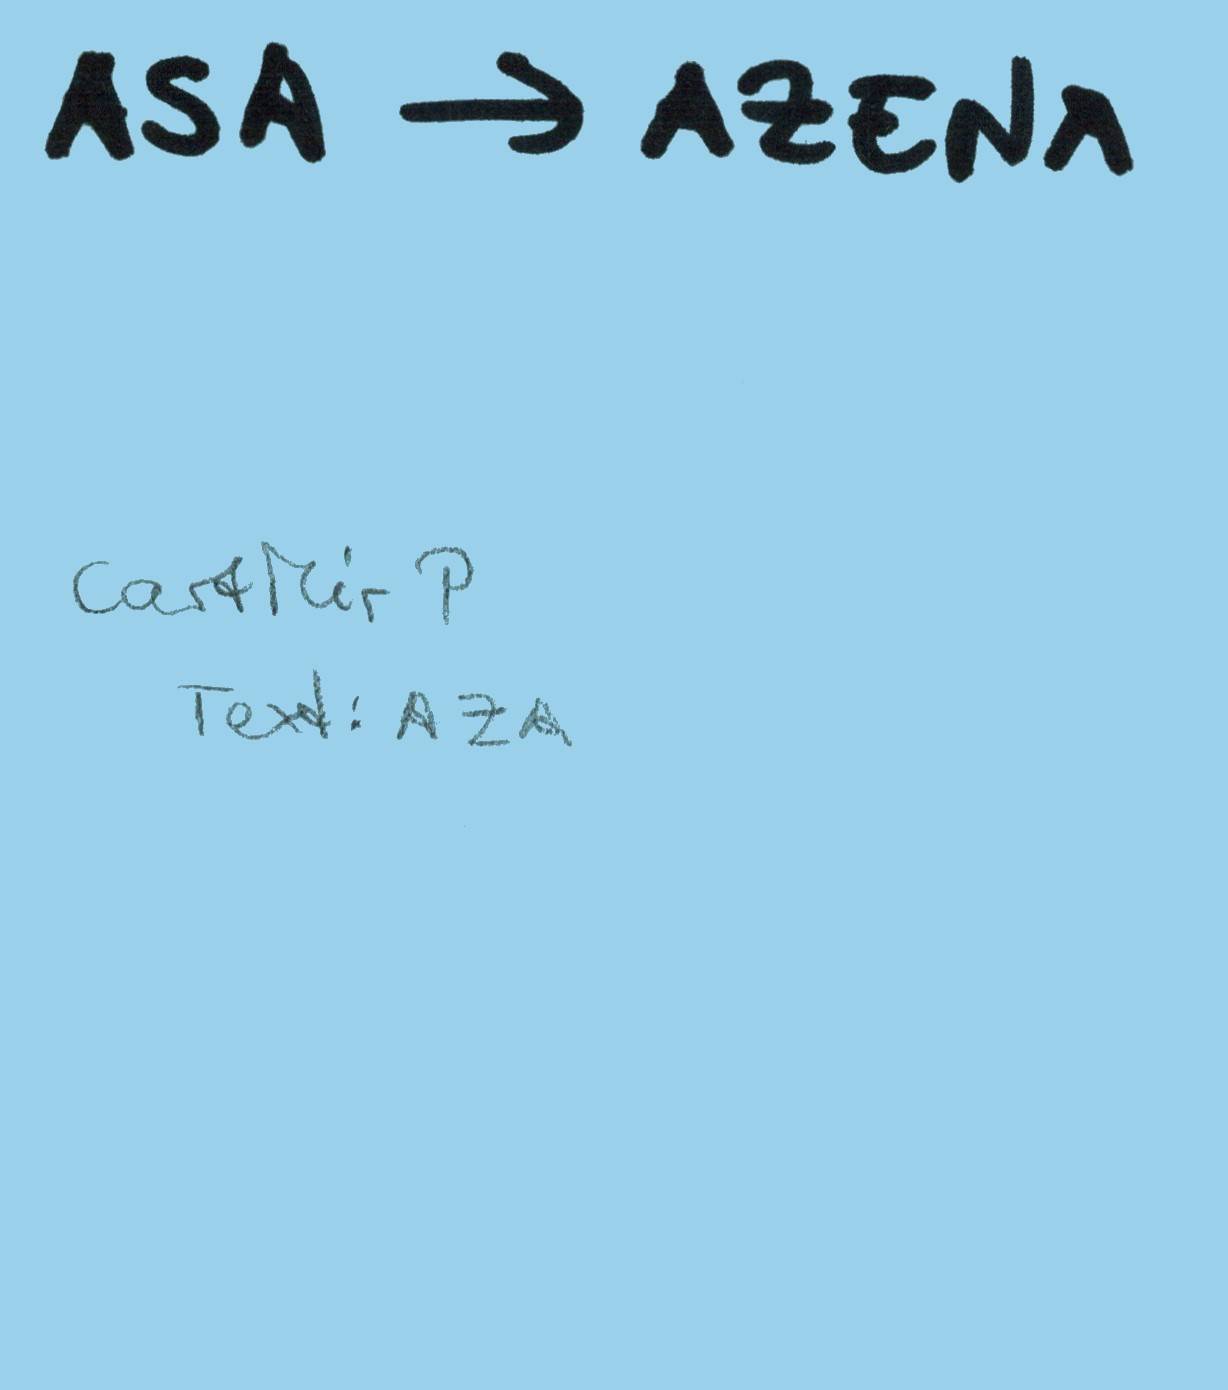 ASA → AZENA
CartMir P
Text: AZA